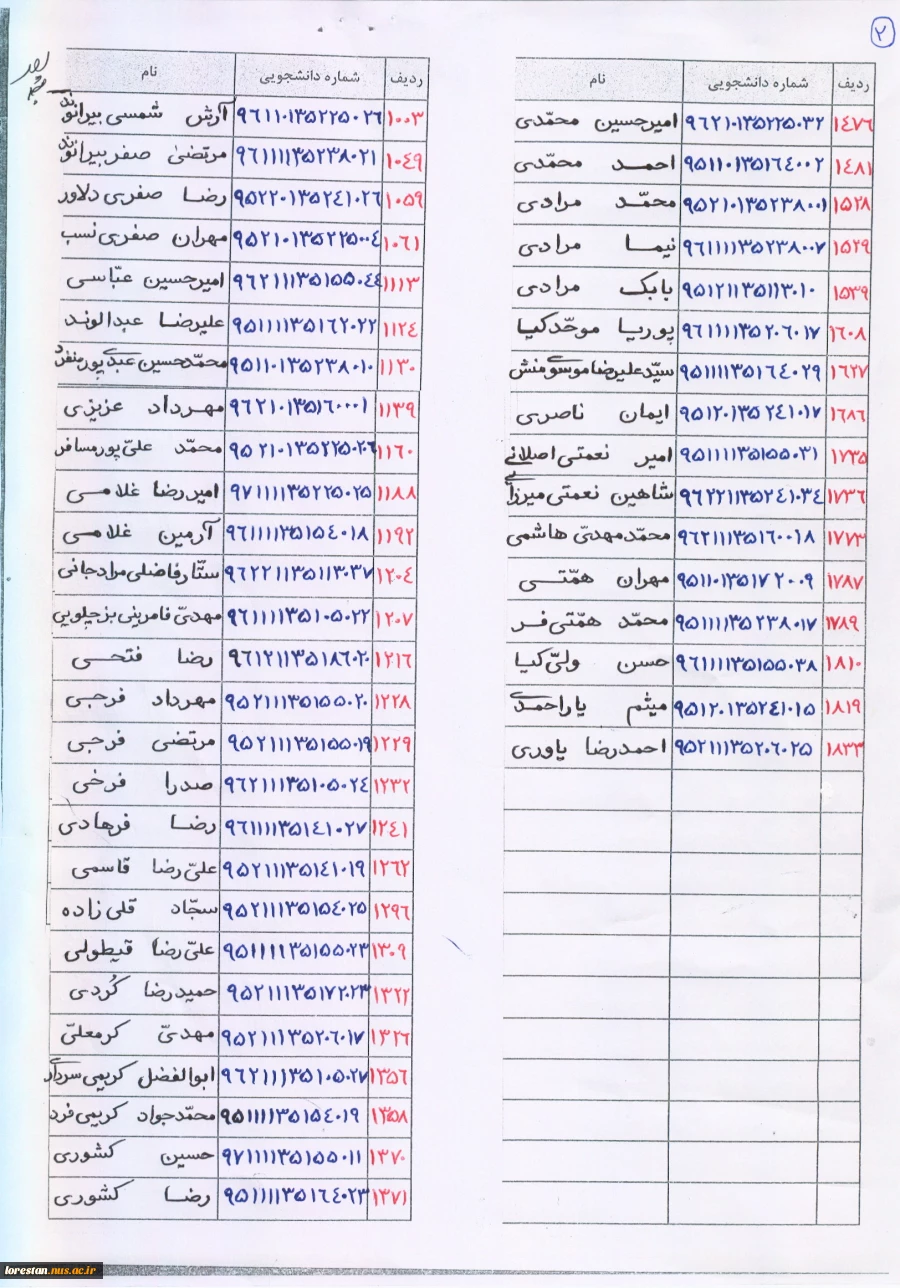 ۲
ردیف شماره دانشجویی نام
۱۴۷۶ ۹۶۲۱۰۱۳۵۲۲۵۰۳۲ امیرحسین محمّدی
۱۴۸۱ ۹۵۱۱۰۱۳۵۱۶۴۰۰۲ احمد محمّدی
۱۵۲۸ ۹۵۲۱۰۱۳۵۲۳۸۰۰۱ محمّد مرادی
۱۵۲۹ ۹۶۱۱۱۱۳۵۲۳۸۰۰۷ نیما مرادی
۱۵۳۹ ۹۵۱۲۱۱۳۵۱۱۳۰۱۰ بابک مرادی
۱۶۰۸ ۹۶۱۱۱۱۳۵۲۰۶۰۱۷ پوریا موحّدکیا
۱۶۲۷ ۹۵۱۱۱۱۳۵۱۶۴۰۲۹ سیّدعلیرضا موسوی منش
۱۶۸۶ ۹۵۱۲۰۱۳۵۲۴۱۰۱۷ ایمان ناصری
۱۷۳۵ ۹۵۱۱۱۱۳۵۱۵۵۰۳۱ امیر نعمتی اصلانی
۱۷۳۶ ۹۶۲۲۱۱۳۵۲۴۱۰۳۴ شاهین نعمتی میرزائی
۱۷۷۳ ۹۶۲۱۱۱۳۵۱۶۰۰۱۸ محمّدمهدیّ هاشمی
۱۷۸۷ ۹۵۱۱۰۱۳۵۱۷۲۰۰۹ مهران همّتی
۱۷۸۹ ۹۵۱۱۱۱۳۵۲۳۸۰۱۷ محمّد همّتی فر
۱۸۱۰ ۹۶۱۱۱۱۳۵۱۵۵۰۳۸ حسن ولیّ کیا
۱۸۱۹ ۹۵۱۲۰۱۳۵۲۴۱۰۱۵ میثم یاراحمدی
۱۸۳۳ ۹۵۲۱۱۱۳۵۲۰۶۰۲۵ احمدرضا یاوری
ردیف شماره دانشجویی نام
۱۰۰۳ ۹۶۱۱۰۱۳۵۲۲۵۰۲۶ آرش شمسی بیرانوند
۱۰۴۹ ۹۶۱۱۱۱۳۵۲۳۸۰۲۱ مرتضیٰ صفر بیرانوند
۱۰۵۹ ۹۵۲۲۰۱۳۵۲۴۱۰۲۶ رضا صفری دلاور
۱۰۶۱ ۹۵۲۱۰۱۳۵۲۲۵۰۰۴ مهران صفری نسب
۱۱۱۳ ۹۶۲۱۱۱۳۵۱۵۵۰۴۴ امیرحسین عبّاسی
۱۱۲۴ ۹۵۱۱۱۱۳۵۱۶۲۰۲۲ علیرضا عبدالوند
۱۱۳۰ ۹۵۱۱۰۱۳۵۲۳۸۰۱۰ محمّدحسین عبدی پور منفرد
۱۱۳۹ ۹۶۲۱۰۱۳۵۱۶۰۰۰۱ مهرداد عزیزی
۱۱۶۰ ۹۵۲۱۰۱۳۵۲۲۵۰۲۶ محمّد علیّ پور مسافر
۱۱۸۸ ۹۷۱۱۱۱۳۵۲۲۵۰۲۵ امیررضا غلامی
۱۱۹۲ ۹۶۱۱۱۱۳۵۱۵۴۰۱۸ آرمین غلامی
۱۲۰۴ ۹۶۲۲۱۱۳۵۱۱۳۰۳۷ ستّار فاضلی مرادجانی
۱۲۰۷ ۹۶۱۱۱۱۳۵۱۰۵۰۲۲ مهدیّ فامرینی بزچلویی
۱۲۱۶ ۹۶۱۲۱۱۳۵۱۸۶۰۲۰ رضا فتحی
۱۲۲۸ ۹۵۲۱۱۱۳۵۱۵۵۰۲۰ مهرداد فرجی
۱۲۲۹ ۹۵۲۱۱۱۳۵۱۵۵۰۱۹ مرتضی فرجی
۱۲۳۲ ۹۶۲۱۱۱۳۵۱۰۵۰۲۴ صدرا فرخی
۱۲۴۱ ۹۶۱۱۱۱۳۵۱۴۱۰۲۷ رضا فرهادی
۱۲۶۲ ۹۵۲۱۱۱۳۵۱۴۱۰۱۹ علیّ رضا قاسمی
۱۲۹۶ ۹۵۲۱۱۱۳۵۱۵۴۰۲۵ سجّاد قلی زاده
۱۳۰۹ ۹۵۱۱۱۱۳۵۱۵۵۰۲۳ علیّ رضا قیطولی
۱۳۲۲ ۹۵۲۱۱۱۳۵۱۷۲۰۲۳ حمیدرضا کُردی
۱۳۲۶ ۹۵۲۱۱۱۳۵۲۰۶۰۱۷ مهدیّ کرمعلیّ
۱۳۵۶ ۹۶۲۱۱۱۳۵۱۰۵۰۲۷ ابوالفضل کریمی سرداری
۱۳۵۸ ۹۵۱۱۱۱۳۵۱۵۴۰۱۹ محمّدجواد کریمی فرد
۱۳۷۰ ۹۷۱۱۱۱۳۵۱۵۵۰۱۱ حسین کشوری
۱۳۷۱ ۹۵۱۱۱۱۳۵۱۶۴۰۲۳ رضا کشوری
lorestan.nus.ac.ir